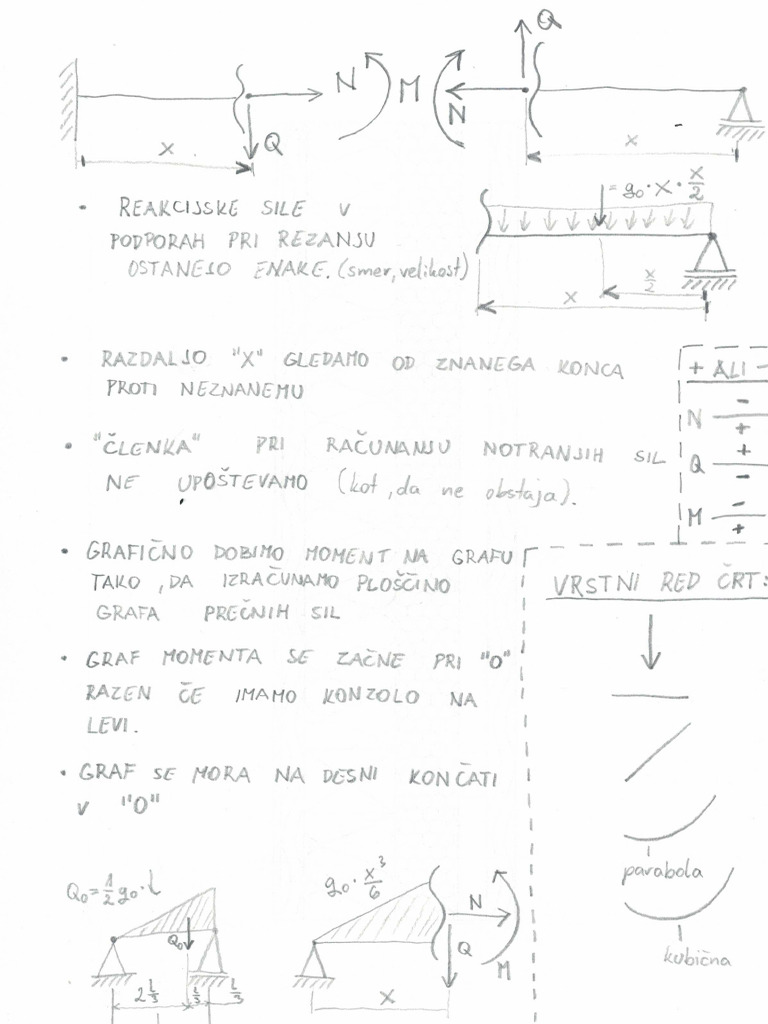 Q
N M N
Q
x x
= g₀·x·x/2
• REAKCIJSKE SILE V
PODPORAH PRI REZANJU
OSTANEJO ENAKE. (smer, velikost)
x/2
x
• RAZDALJO "X" GLEDAMO OD ZNANEGA KONCA
PROTI NEZNANEMU
+ ALI -
N - +
Q + -
M - +
• "ČLENKA" PRI RAČUNANJU NOTRANJIH SIL
NE UPOŠTEVAMO (kot, da ne obstaja).
• GRAFIČNO DOBIMO MOMENT NA GRAFU
TAKO, DA IZRAČUNAMO PLOŠČINO
GRAFA PREČNIH SIL
• GRAF MOMENTA SE ZAČNE PRI "0"
RAZEN ČE IMAMO KONZOLO NA
LEVI.
• GRAF SE MORA NA DESNI KONČATI
V "0"
VRSTNI RED ČRT:
parabola
kubična
Q₀ = 1/2 g₀·
Q₀
2 L/3 L/3 L/3
g₀·x³/6
N
Q
M
x